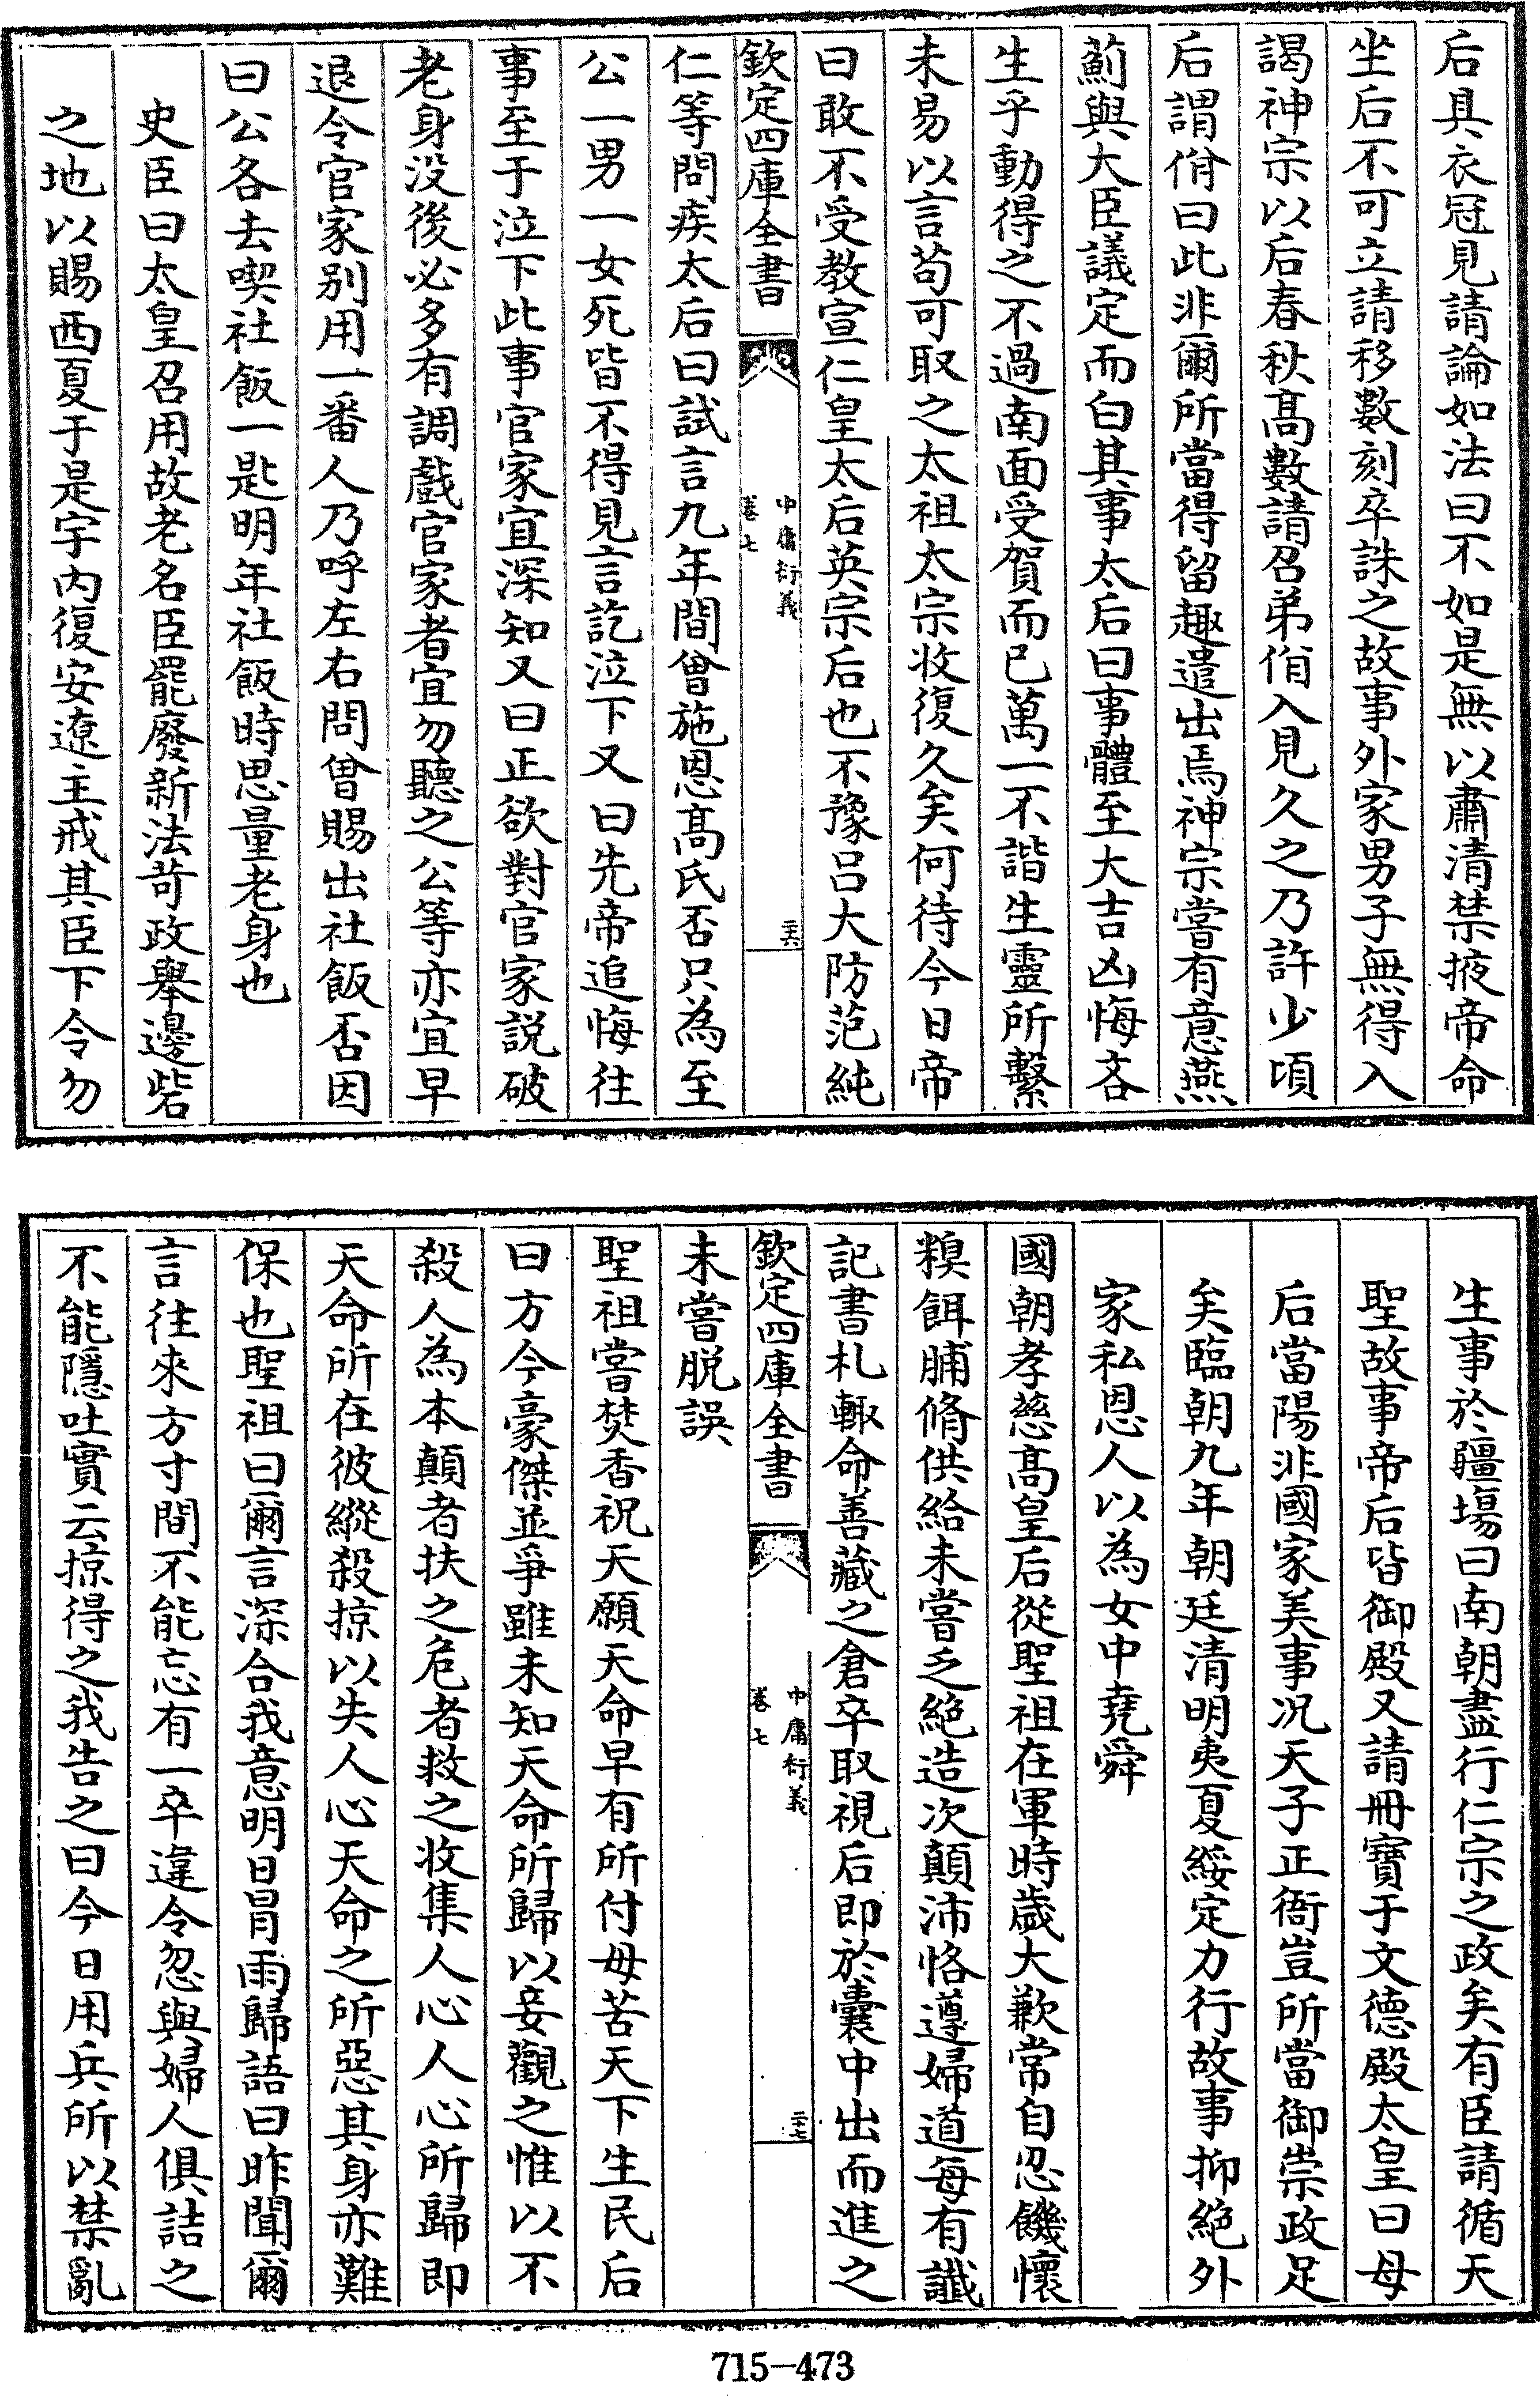 后具衣冠見請論如法曰不如是無以肅清禁掖帝命
坐后不可立請移數刻卒誅之故事外家男子無得入
謁神宗以后春秋髙數請召弟佾入見久之乃許少頃
后謂佾曰此非爾所當得留趣遣出焉神宗嘗有意燕
薊與大臣議定而白其事太后曰事體至大吉凶悔吝
生乎動得之不過南面受賀而已萬一不諧生靈所繫
未易以言苟可取之太祖太宗收復久矣何待今日帝
曰敢不受教宣仁皇太后英宗后也不豫吕大防范純
欽定四庫全書
中庸衍義
卷七
二十六
仁等問疾太后曰試言九年間曾施恩髙氏否只為至
公一男一女死皆不得見言訖泣下又曰先帝追悔往
事至于泣下此事官家宜深知又曰正欲對官家説破
老身没後必多有調戲官家者宜勿聽之公等亦宜早
退令官家别用一番人乃呼左右問曾賜出社飯否因
曰公各去喫社飯一匙明年社飯時思量老身也
史臣曰太皇召用故老名臣罷廢新法苛政舉邊砦
之地以賜西夏于是宇内復安遼主戒其臣下令勿
生事於疆場曰南朝盡行仁宗之政矣有臣請循天
聖故事帝后皆御殿又請冊寶于文德殿太皇曰母
后當陽非國家美事况天子正衙豈所當御崇政足
矣臨朝九年朝廷清明夷夏綏定力行故事抑絶外
家私恩人以為女中堯舜
國朝孝慈髙皇后從聖祖在軍時歲大歉常自忍饑懷
糗餌脯脩供給未嘗乏絶造次顛沛恪遵婦道每有讖
記書札輙命善藏之倉卒取視后即於囊中出而進之
欽定四庫全書
中庸衍義
卷七
二十七
未嘗脱誤
聖祖嘗焚香祝天願天命早有所付毋苦天下生民后
曰方今豪傑並爭雖未知天命所歸以妾觀之惟以不
殺人為本顛者扶之危者救之收集人心人心所歸即
天命所在彼縱殺掠以失人心天命之所惡其身亦難
保也聖祖曰爾言深合我意明日冒雨歸語曰昨聞爾
言往來方寸間不能忘有一卒違令忽與婦人俱詰之
不能隱吐實云掠得之我告之曰今日用兵所以禁亂
715—473